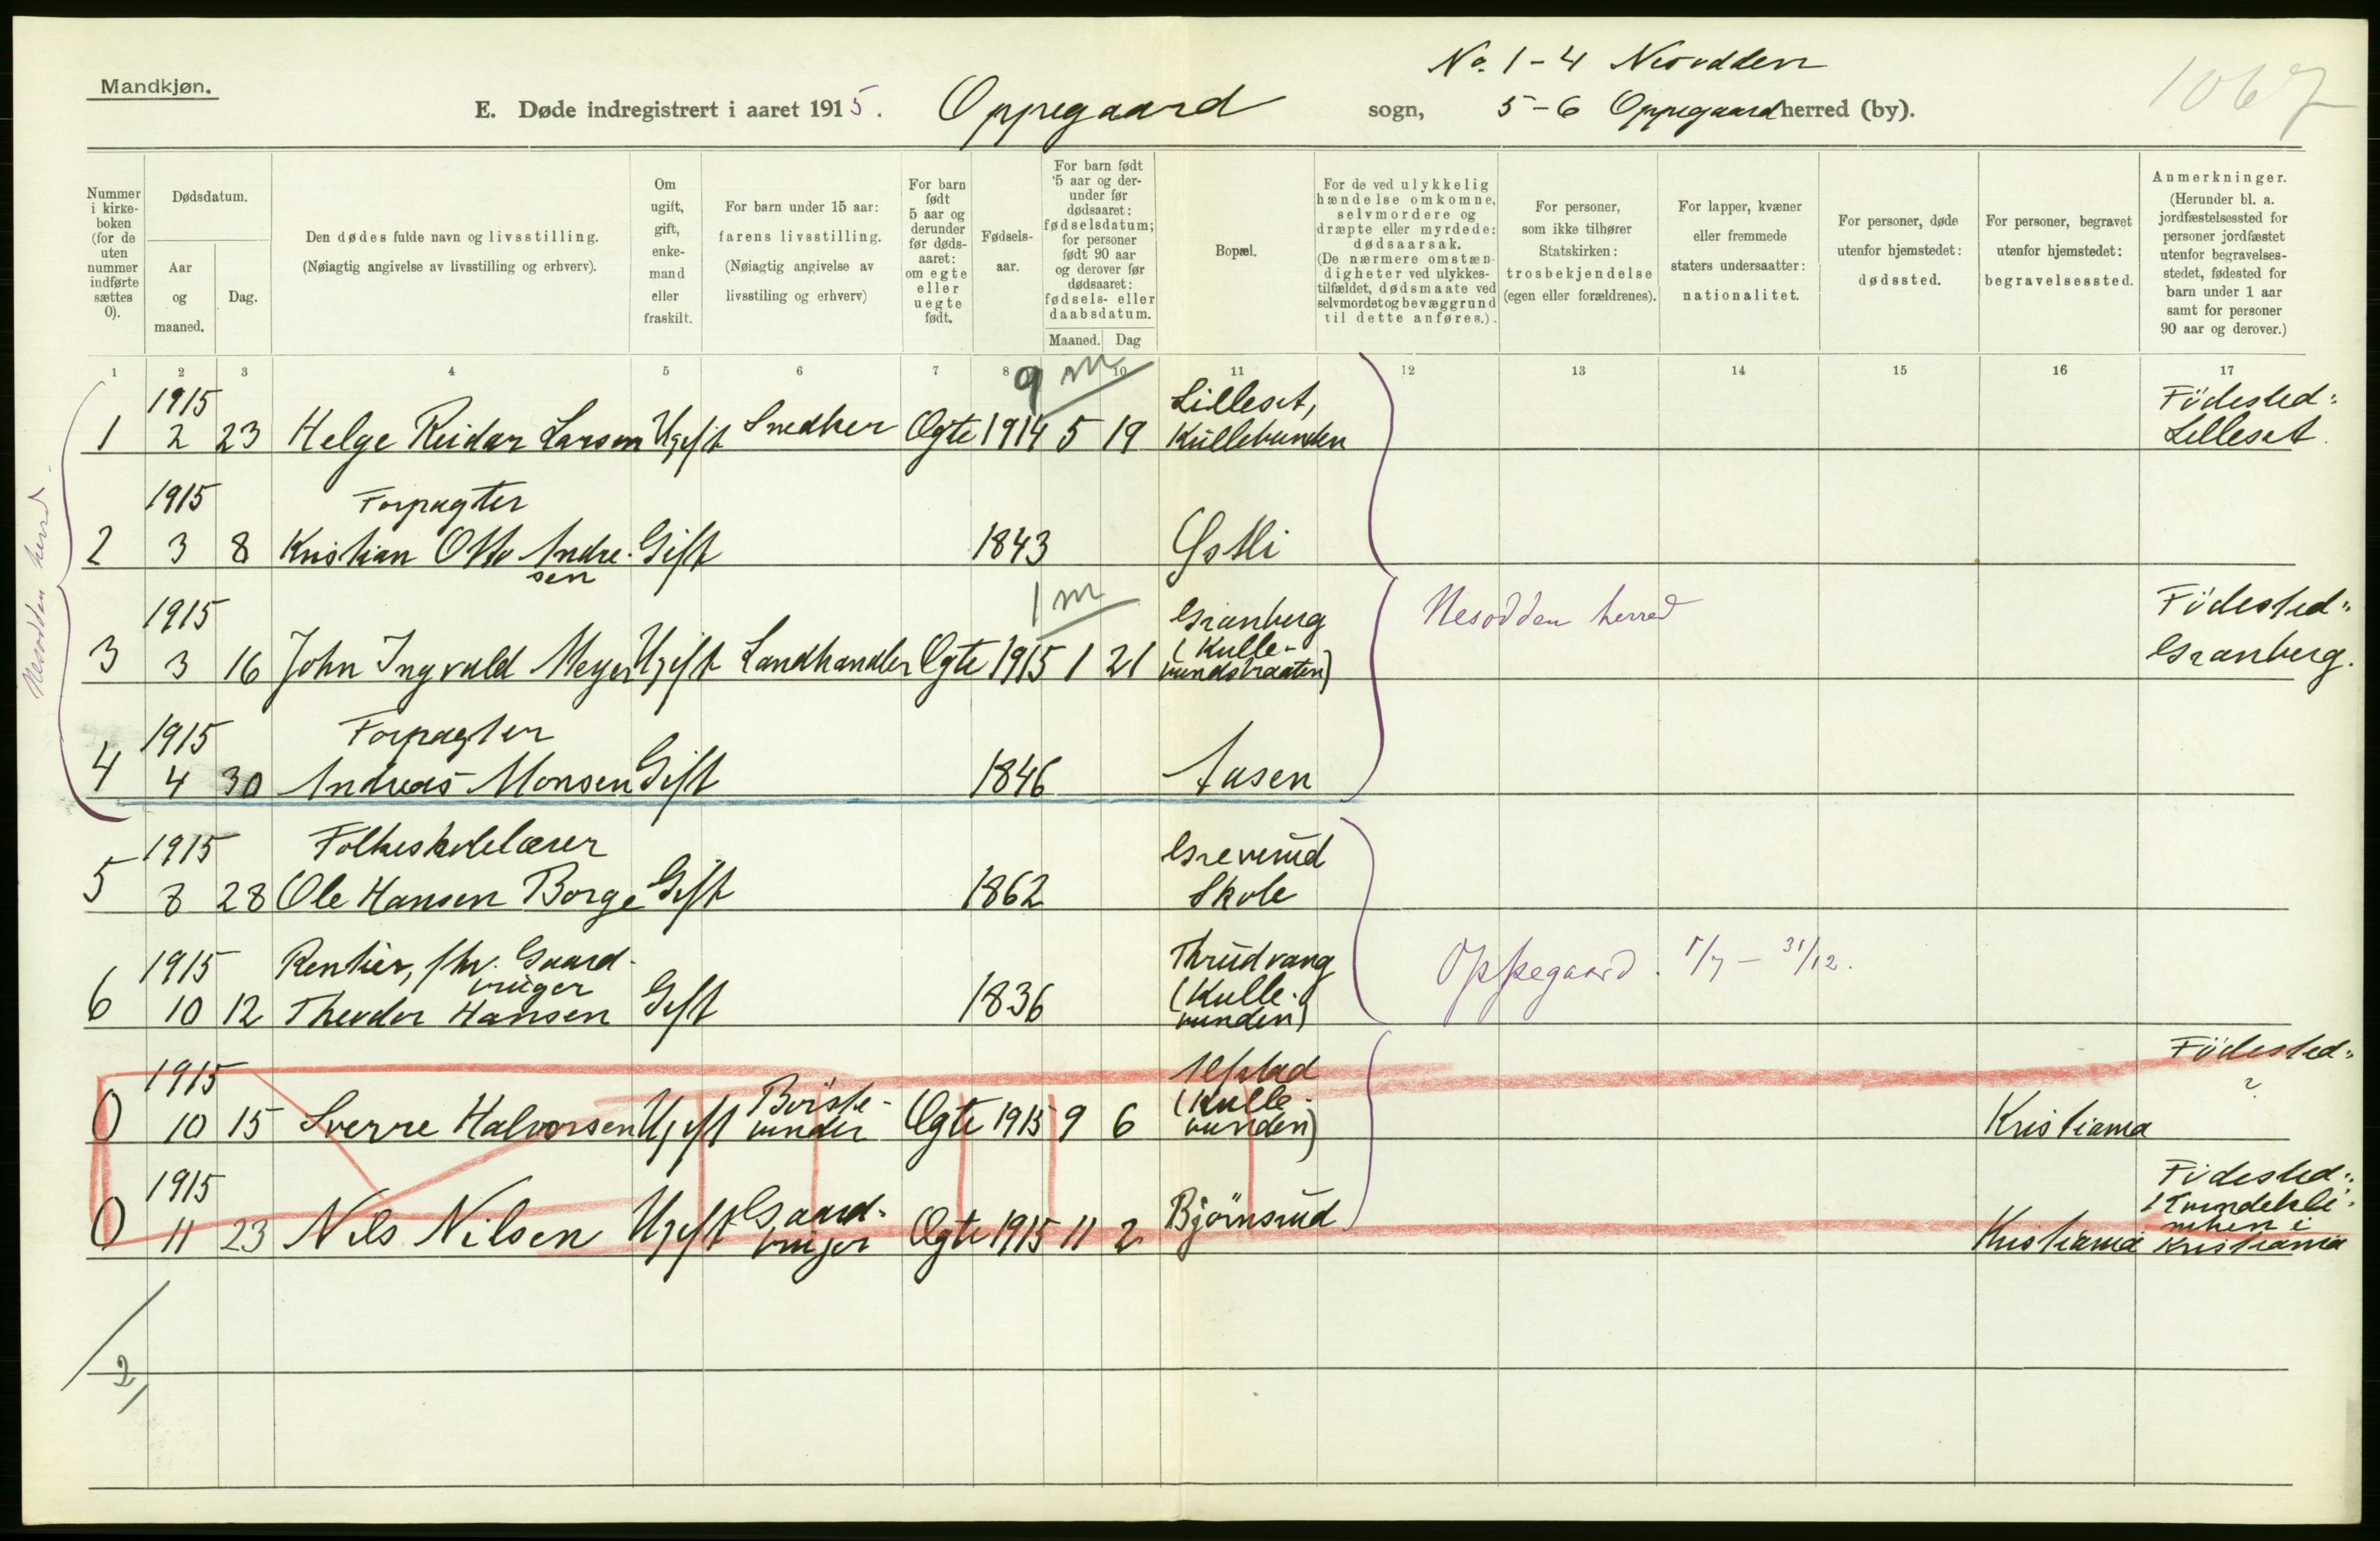 No. 1-4 Nesodden
Mandkjøn.
E. Døde indregistrert i aaret 1915. Oppegaard sogn, 5-6 Oppegaard herred (by).
1067
Nummer i kirke-boken (for de uten nummer indførte sættes 0).
Dødsdatum.
Aar og maaned.
Dag.
Den dødes fulde navn og livsstilling.
(Nøiagtig angivelse av livsstilling og erhverv).
Om ugift, gift, enke-mand eller fraskilt.
For barn under 15 aar:
farens livsstilling.
(Nøiagtig angivelse av livsstiling og erhverv)
For barn født 5 aar og derunder før døds-aaret: om egte eller uegte født.
Fødsels-aar.
For barn født 5 aar og der-under før dødsaaret: fødselsdatum; for personer født 90 aar og derover før dødsaaret: fødsels- eller daabsdatum.
Maaned. Dag
Bopæl.
For de ved ulykkelig hændelse omkomne, selvmordere og dræpte eller myrdede: dødsaarsak.
(De nærmere omstæn-digheter ved ulykkes-tilfældet, dødsmaate ved selvmordet og bevæggrund til dette anføres.).
For personer, som ikke tilhører Statskirken: trosbekjendelse (egen eller forældrenes).
For lapper, kvæner eller fremmede staters undersaatter: nationalitet.
For personer, døde utenfor hjemstedet: dødssted.
For personer, begravet utenfor hjemstedet: begravelsessted.
Anmerkninger.
(Herunder bl. a. jordfæstelsessted for personer jordfæstet utenfor begravelses-stedet, fødested for barn under 1 aar samt for personer 90 aar og derover.)
1 2 3 4 5 6 7 8 9 10 11 12 13 14 15 16 17
9 m
1915 Lilleset, Födested:
1 2 23 Helge Reidar Larsen Ugift Snedker Egte 1914 5 19 Kullebunden Lilleset.
1915 Forpagter
2 3 8 Kristian Otto Andre- Gift 1843 Østli
sen
1 m
1915 Granberg Nesodden herred Födested:
3 3 16 John Ingvald Meyer Ugift Landhandler Egte 1915 1 21 (Kulle-bundstraaten) Granberg.
1915 Forpagter
4 4 30 Andreas Monsen Gift 1846 Aasen
Nesodden herred.
1915 Folkeskolelærer Greverud
5 8 28 Ole Hansen Borge Gift 1862 Skole
1915 Rentier, fhv. Gaard- Thrudvang
bruger (Kulle-
6 10 12 Theodor Hansen Gift 1836 bunden)
Oppegaard. 1/7 - 31/12.
1915 Börste- (Kulle- Födested:
0 10 15 Sverre Halvorsen Ugift binder Egte 1915 9 6 bunden) Kristiania ?
1915 Gaard- Födested:
0 11 23 Nils Nilsen Ugift bruger Egte 1915 11 2 Björnsrud Kristiania Kvindekli-
niken i
Kristiania
2